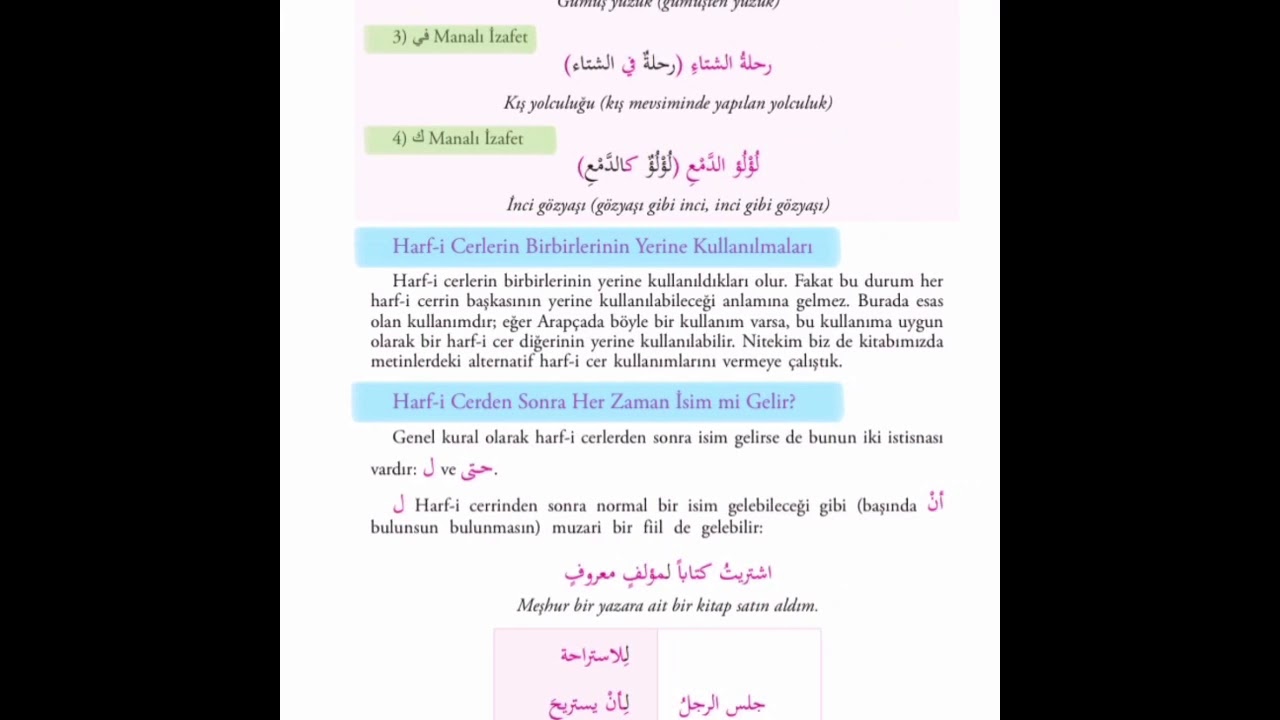 Gümüş yüzük (gümüşten yüzük)
3) في Manalı İzafet
رحلةُ الشتاءِ (رحلةٌ في الشتاء)
Kış yolculuğu (kış mevsiminde yapılan yolculuk)
4) ك Manalı İzafet
لُؤْلُؤ الدَّمْعِ (لُؤْلُؤٌ كالدَّمْعِ)
İnci gözyaşı (gözyaşı gibi inci, inci gibi gözyaşı)
Harf-i Cerlerin Birbirlerinin Yerine Kullanılmaları
Harf-i cerlerin birbirlerinin yerine kullanıldıkları olur. Fakat bu durum her
harf-i cerrin başkasının yerine kullanılabileceği anlamına gelmez. Burada esas
olan kullanımdır; eğer Arapçada böyle bir kullanım varsa, bu kullanıma uygun
olarak bir harf-i cer diğerinin yerine kullanılabilir. Nitekim biz de kitabımızda
metinlerdeki alternatif harf-i cer kullanımlarını vermeye çalıştık.
Harf-i Cerden Sonra Her Zaman İsim mi Gelir?
Genel kural olarak harf-i cerlerden sonra isim gelirse de bunun iki istisnası
vardır: ل ve حتى.
ل Harf-i cerrinden sonra normal bir isim gelebileceği gibi (başında أنْ
bulunsun bulunmasın) muzari bir fiil de gelebilir:
اشتريتُ كتاباً لمؤلفٍ معروفٍ
Meşhur bir yazara ait bir kitap satın aldım.
لِلاستراحة
جلس الرجلُ لِأنْ يستريحَ